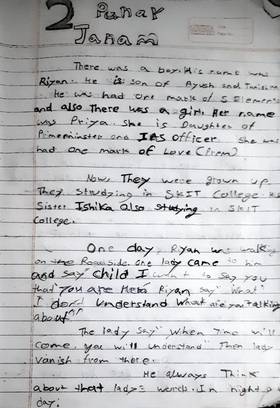 2 Punar
Janam
There was a boy. His name was
Riyan. He is son of Ayush and
He was had one mark of 5 Element
and also There was a girl. Her name
was Priya. She is Daughter of
Primeminister and IAS Officer. She was
had one mark of Love (Prem)
Now They were grown up
They Studying in SKIT College
Sister Ishika also studying in SKIT
College.
One day, Riyan was walking
on the Roadside. one lady came to him
and say child I want to say you
that you are Hero Riyan say "What
I don't understand What are you talking
about"
The lady say "When Time will
come, you will understand" Then lady
vanish from there.
He always Think
about that lady's words. In night
day.